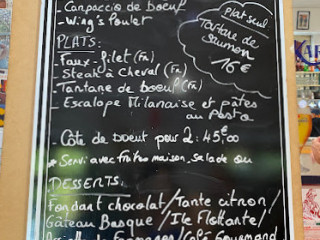 - Carpaccio de boeuf
- Wing's Poulet
PLATS:
- Faux-Filet (Fr)
- Steak à Cheval (Fr)
- Tartare de boeuf (Fr)
- Escalope Milanaise et pâtes
au pesto
- Côte de boeuf pour 2: 45€00
* Servi avec frites maison, salade ou
DESSERTS:
Fondant chocolat/Tarte citron/
Gâteau Basque/Ile Flottante/
Assiette de Fromages/Café Gourmand
Plat seul
Tartare de
saumon
16€